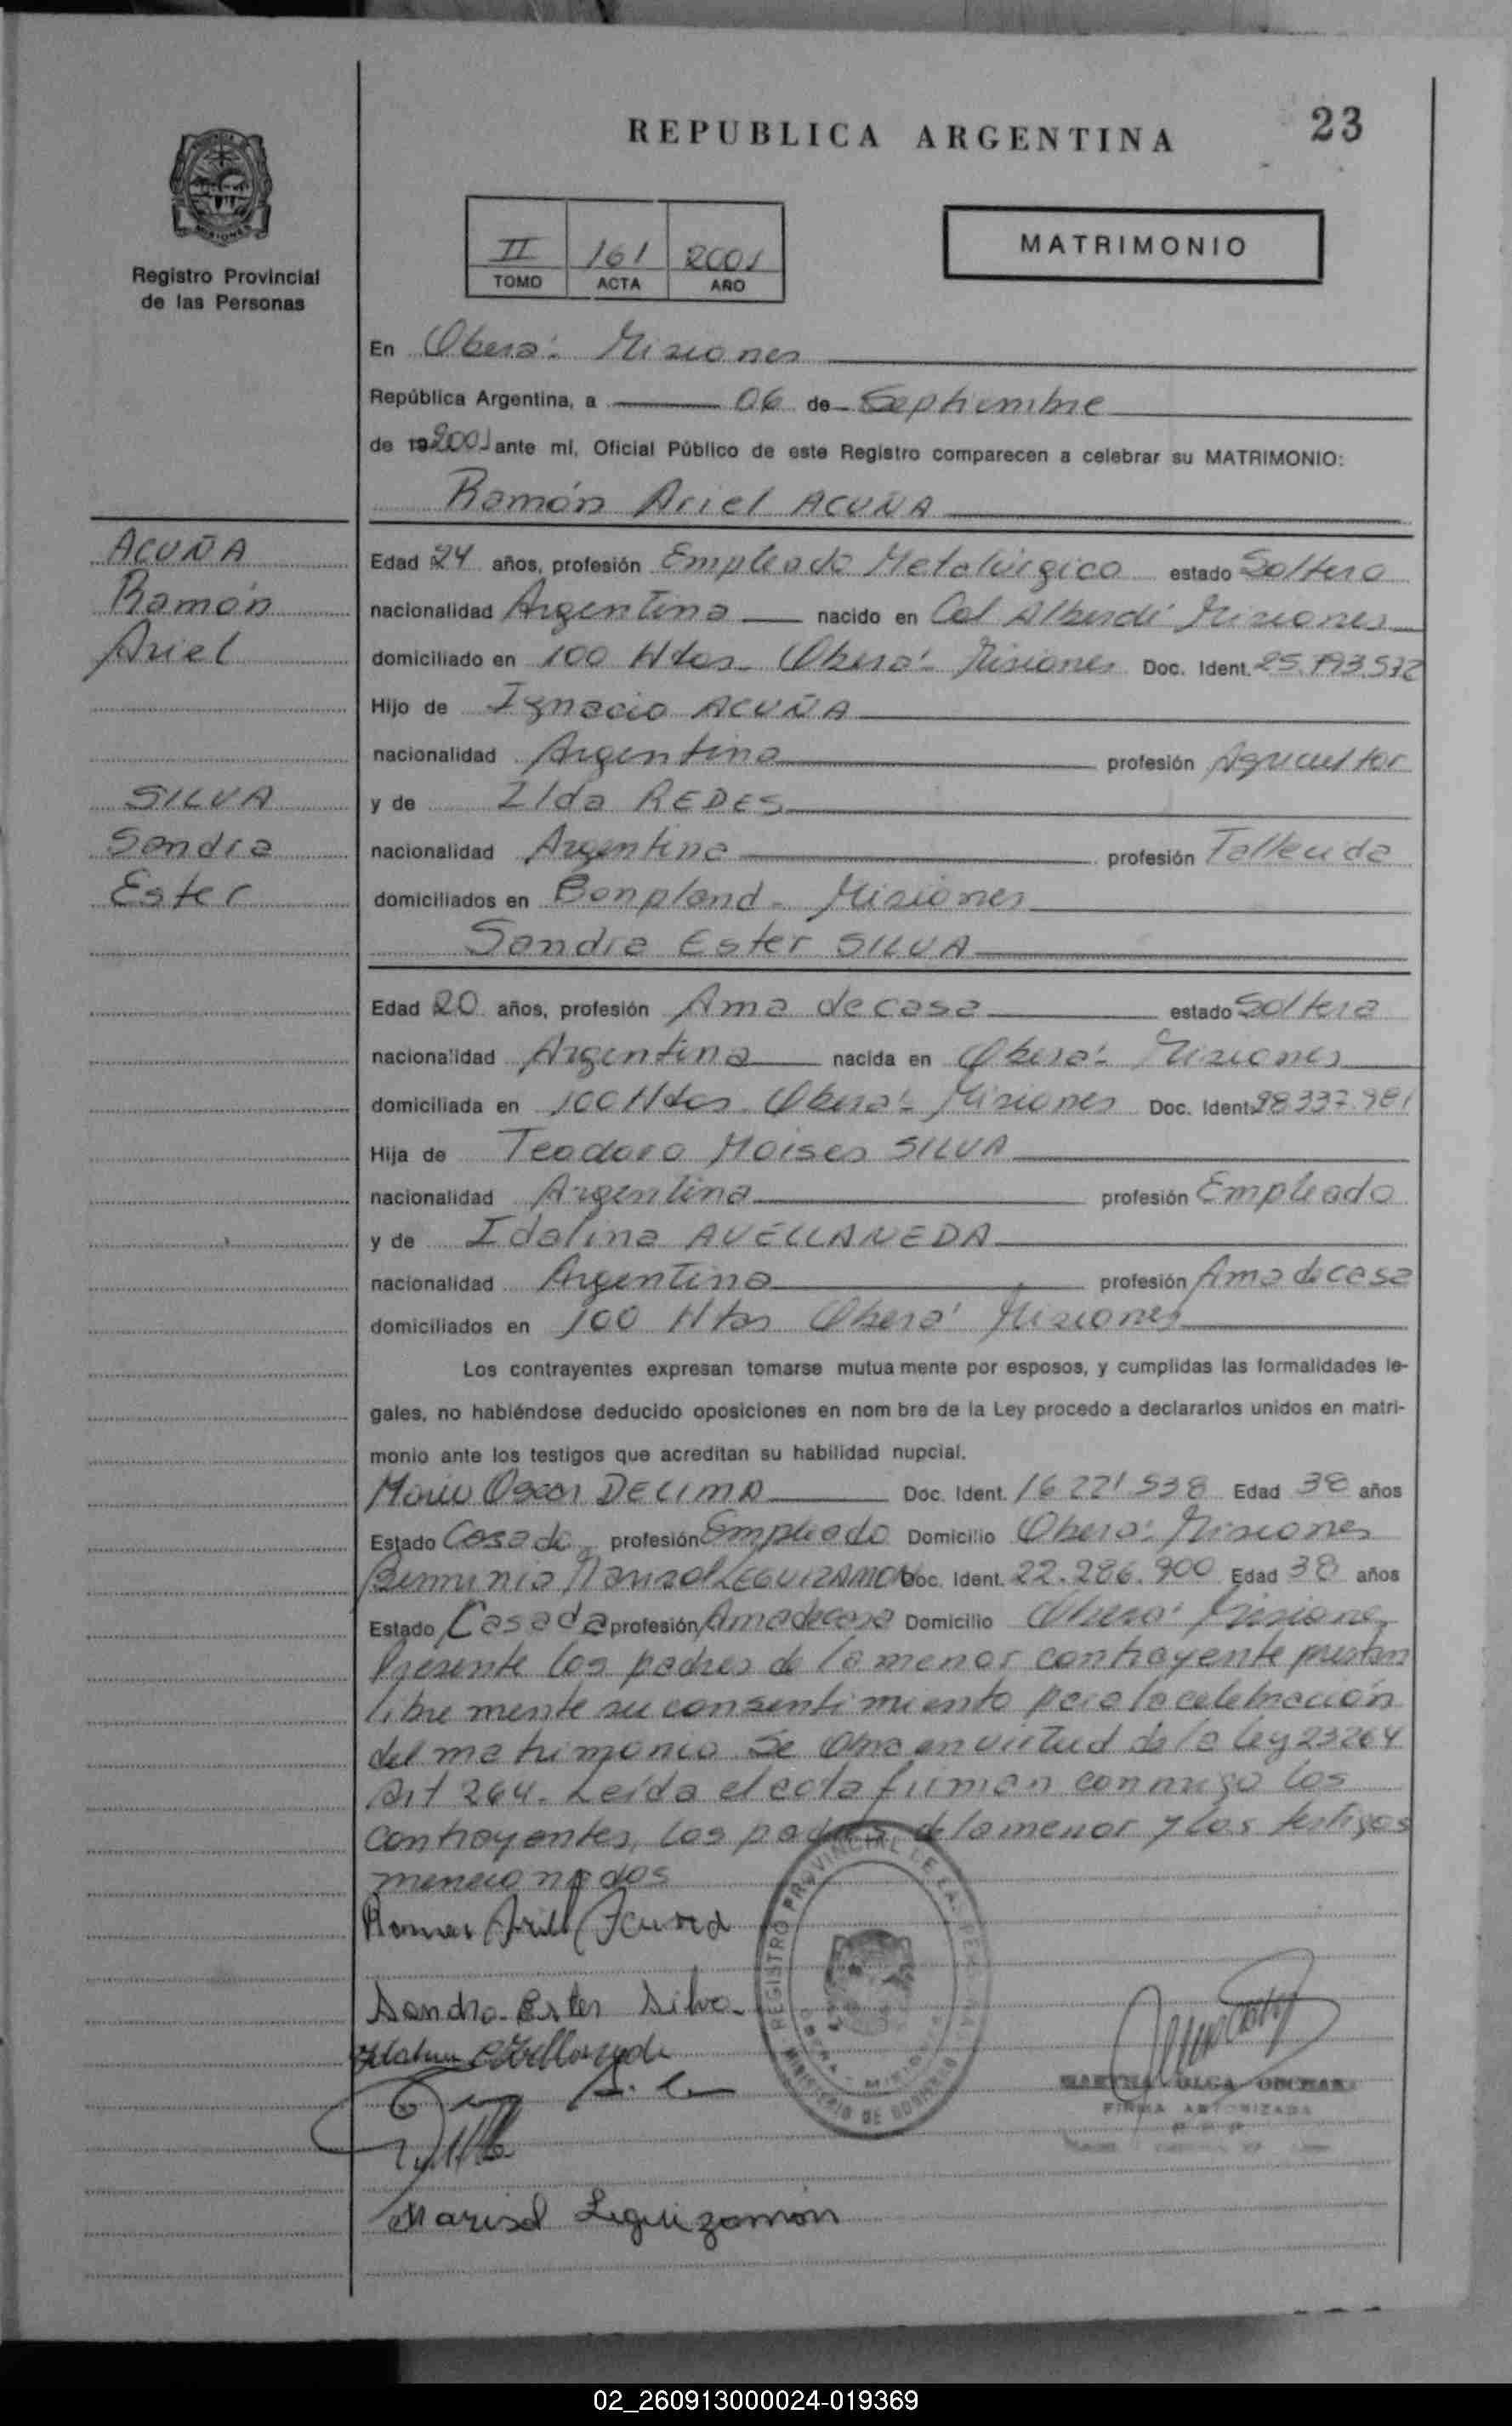 23
REPUBLICA ARGENTINA
MATRIMONIO
II 161 2001
TOMO ACTA AÑO
MISIONES
Registro Provincial
de las Personas
En Oberá - Misiones
República Argentina, a 06 de Septiembre
de 19 2001 ante mí, Oficial Público de este Registro comparecen a celebrar su MATRIMONIO:
Ramón Ariel ACUÑA
ACUÑA
Ramón
Ariel
Edad 24 años, profesión Empleado Metalúrgico estado Soltero
nacionalidad Argentina nacido en Col Alberdi Misiones
domiciliado en 100 Htas - Oberá - Misiones Doc. Ident. 25.793.572
Hijo de Ignacio ACUÑA
nacionalidad Argentina profesión Agricultor
y de Ilda REDES
nacionalidad Argentina profesión Fallecida
domiciliados en Bonpland - Misiones
SILVA
Sandra
Ester
Sandra Ester SILVA
Edad 20 años, profesión Ama de casa estado Soltera
nacionalidad Argentina nacida en Oberá - Misiones
domiciliada en 100 Htas Oberá - Misiones Doc. Ident. 28.337.981
Hija de Teodoro Moises SILVA
nacionalidad Argentina profesión Empleado
y de Idalina AVELLANEDA
nacionalidad Argentina profesión Ama de casa
domiciliados en 100 Htas Oberá Misiones
Los contrayentes expresan tomarse mutua mente por esposos, y cumplidas las formalidades le-
gales, no habiéndose deducido oposiciones en nom bre de la Ley procedo a declararlos unidos en matri-
monio ante los testigos que acreditan su habilidad nupcial.
Mario Oscar DECIMA Doc. Ident. 16.221.538 Edad 38 años
Estado Casado profesión Empleado Domicilio Oberá - Misiones
Marisol LEGUIZAMON Doc. Ident. 22.286.900 Edad 38 años
Estado Casada profesión Ama de casa Domicilio Oberá Misiones
Presente los padres de la menor contrayente prestan
libre mente su consentimiento para la celebración
del matrimonio se obra en virtud de la ley 23264
Art 264. Leída el acta firman conmigo los
contrayentes, los padres de la menor y los testigos
mencionados
Ramon Ariel Acuña
Sandra Ester Silva
Idalina Avellaneda
Marisol Leguizamón
REGISTRO PROVINCIAL DE LAS PERSONAS
MINISTERIO DE GOBIERNO
OBERA - MISIONES
MARTHA OLGA
FIRMA AUTORIZADA
02_260913000024-019369